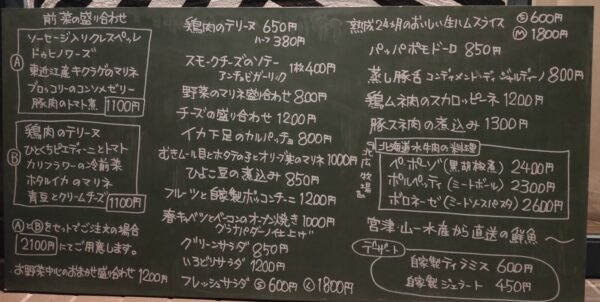 前菜の盛り合わせ
Ⓐ
ソーセージ入りクレスペッレ
ドゥヒノワーズ
東近江産キクラゲのマリネ
ブロッコリーのコンソメゼリー
豚肉のトマト煮 1100円
Ⓑ
鶏肉のテリーヌ
ひとくちピエディーニとトマト
カリフラワーの冷前菜
ホタルイカのマリネ
青豆とクリームチーズ 1100円
ⒶとⒷをセットでご注文の場合
2100円にてご用意します。
・お野菜中心のおまかせ盛り合わせ 1200円
鶏肉のテリーヌ 650円
ハーフ 380円
スモークチーズのソテー 1枚400円
アンチョビガーリック
野菜のマリネ盛り合わせ 800円
チーズの盛り合わせ 1200円
イカ下足のカルパッチョ 800円
むきムール貝とホタテの子とオリーブ漬のマリネ 1000円
ひよこ豆の煮込み 850円
フルーツと自家製ボッコンチーニ 1200円
春キャベツとベーコンのオーブン焼き 1000円
グラナパダーノ仕上げ
グリーンサラダ 850円
いろどりサラダ 1200円
フレッシュサラダ Ⓢ600円 Ⓛ1800円
熟成24ヶ月のおいしい生ハムスライス Ⓢ600円
Ⓜ1800円
パッパポモドーロ 850円
蒸し豚舌 コンディメント・ディ・ジャルディーノ 800円
鶏ムネ肉のスカロッピーネ 1200円
豚スネ肉の煮込み 1300円
北海道水牛肉の料理
広牧場
ペポーゾ(黒胡椒煮) 2400円
ポルペッティ(ミートボール) 2300円
ボロネーゼ(ミートソースパスタ) 2600円
宮津・山一水産から直送の鮮魚〜
デザート
自家製ティラミス 600円
自家製ジェラート 450円